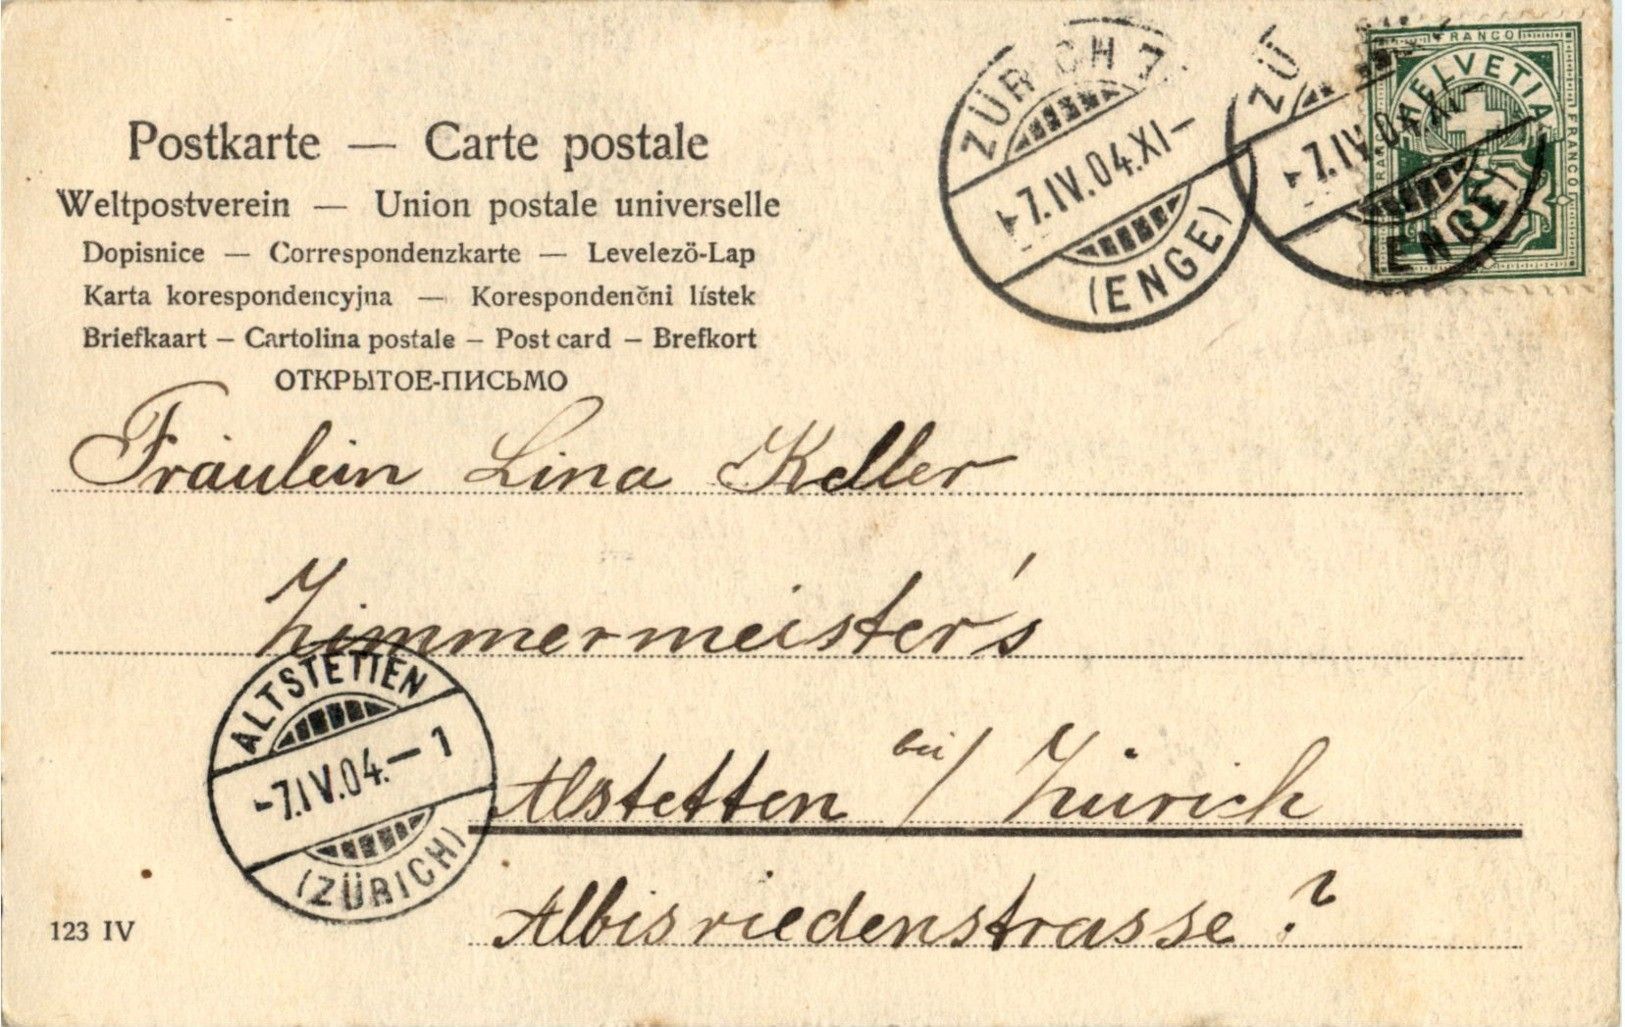 Postkarte — Carte postale
Weltpostverein — Union postale universelle
Dopisnice — Correspondenzkarte — Levelezö-Lap
Karta korespondencyjna — Korespondenčni lístek
Briefkaart – Cartolina postale – Post card – Brefkort
ОТКРЫТОЕ-ПИСЬМО
ZÜRICH 7.
-7.IV.04.XI-
(ENGE)
ZÜ
-7.IV.04.XI-
(ENGE)
FRANCO
HELVETIA
FRANCO
Fräulein Lina Keller
Zimmermeister's
Alstetten bei/ Zürich
Albisriedenstrasse?
ALTSTETTEN
-7.IV.04.-1
(ZÜRICH)
123 IV